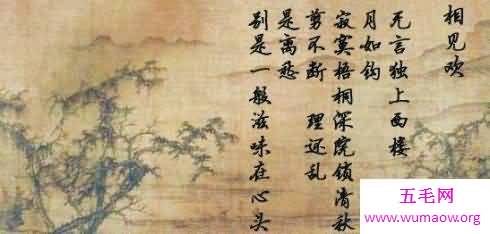 相见欢
无言独上西楼
月如钩
寂寞梧桐深院锁清秋
剪不断 理还乱
是离愁
别是一般滋味在心头
五毛网
www.wumaow.org